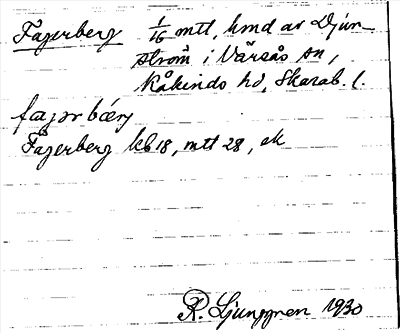 Fagerberg 1/16 mtl, hmd av Djur-
ström i Värsås sn,
Kåkinds hd, Skarab. l.
fajərbærj
Fagerberg kb 18, mtl 28, ek
R. Ljunggren 1930